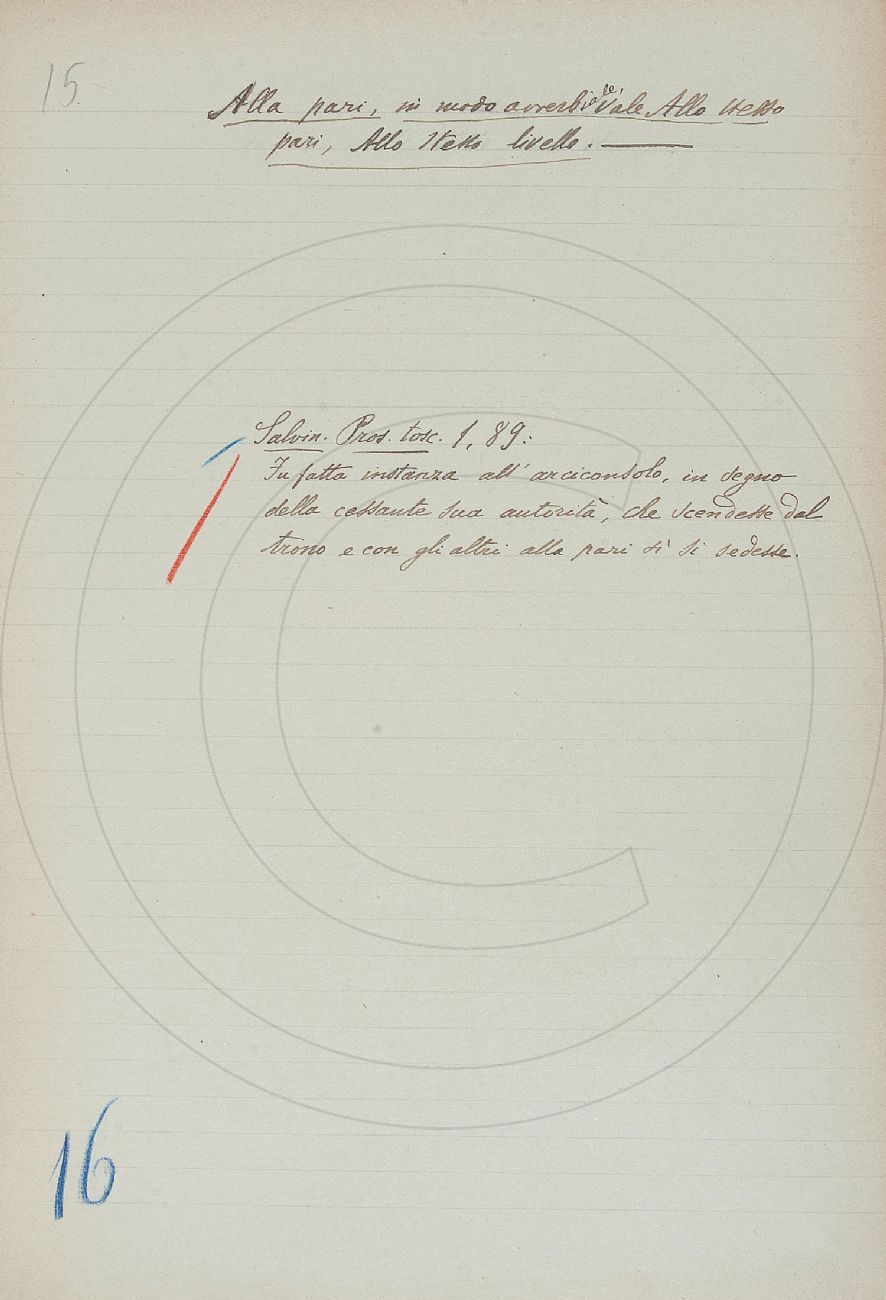 15
Alla pari, in modo avverbiale, vale Allo stesso
pari, Allo stesso livello. —
Salvin. Pros. tosc. 1, 89:
Fu fatta instanza all' arciconsolo, in segno
della cessante sua autorità, che scendesse dal
trono e con gli altri alla pari si sedesse.
16